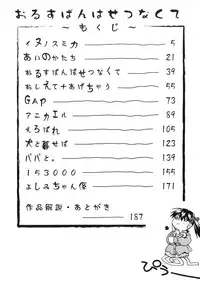 おるすばんはせつなくて
〜もくじ〜
イヌノスミカ 5
あいのかたち 21
おるすばんはせつなくて 39
おしえて+あげちゃう 55
GAP 73
アニカエル 89
えろばれ 105
犬と暮せば 123
パパと。 139
153000 155
よしみちゃん俗 171
作品解説・あとがき 187
ぴゅう